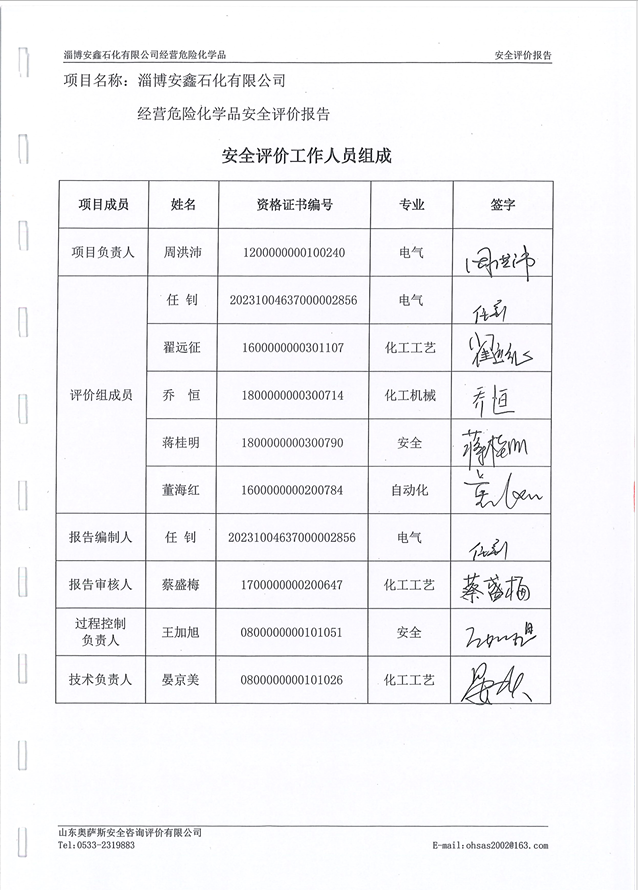 淄博安鑫石化有限公司经营危险化学品 安全评价报告
项目名称：淄博安鑫石化有限公司
经营危险化学品安全评价报告
安全评价工作人员组成
项目成员 姓名 资格证书编号 专业 签字
项目负责人 周洪沛 1200000000100240 电气 周洪沛
评价组成员 任 钊 20231004637000002856 电气 任钊
翟远征 1600000000301107 化工工艺 翟远征
乔 恒 1800000000300714 化工机械 乔恒
蒋桂明 1800000000300790 安全 蒋桂明
董海红 1600000000200784 自动化
报告编制人 任 钊 20231004637000002856 电气 任钊
报告审核人 蔡盛梅 1700000000200647 化工工艺 蔡盛梅
过程控制
负责人 王加旭 0800000000101051 安全 王加旭
技术负责人 晏京美 0800000000101026 化工工艺
山东奥萨斯安全咨询评价有限公司
Tel:0533-2319883 E-mail:ohsas2002@163.com